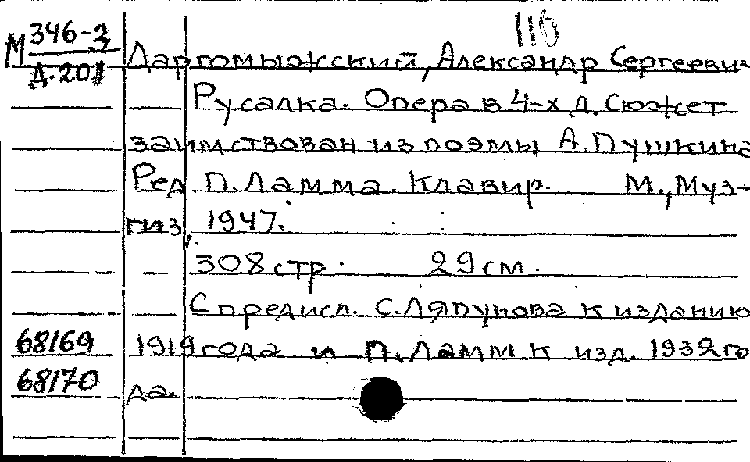 116
М 346-3
Д-201
Даргомыжский, Александр Сергеевич
Русалка. Опера в 4-х д. Сюжет
заимствован из поэмы А. Пушкина
Ред. П. Ламма. Клавир. М., Муз-
гиз, 1947.
308 стр. 29 см.
С предисл. С. Ляпунова к изданию
68169 1919 года и П. Ламм к изд. 1932 го
68170 да.